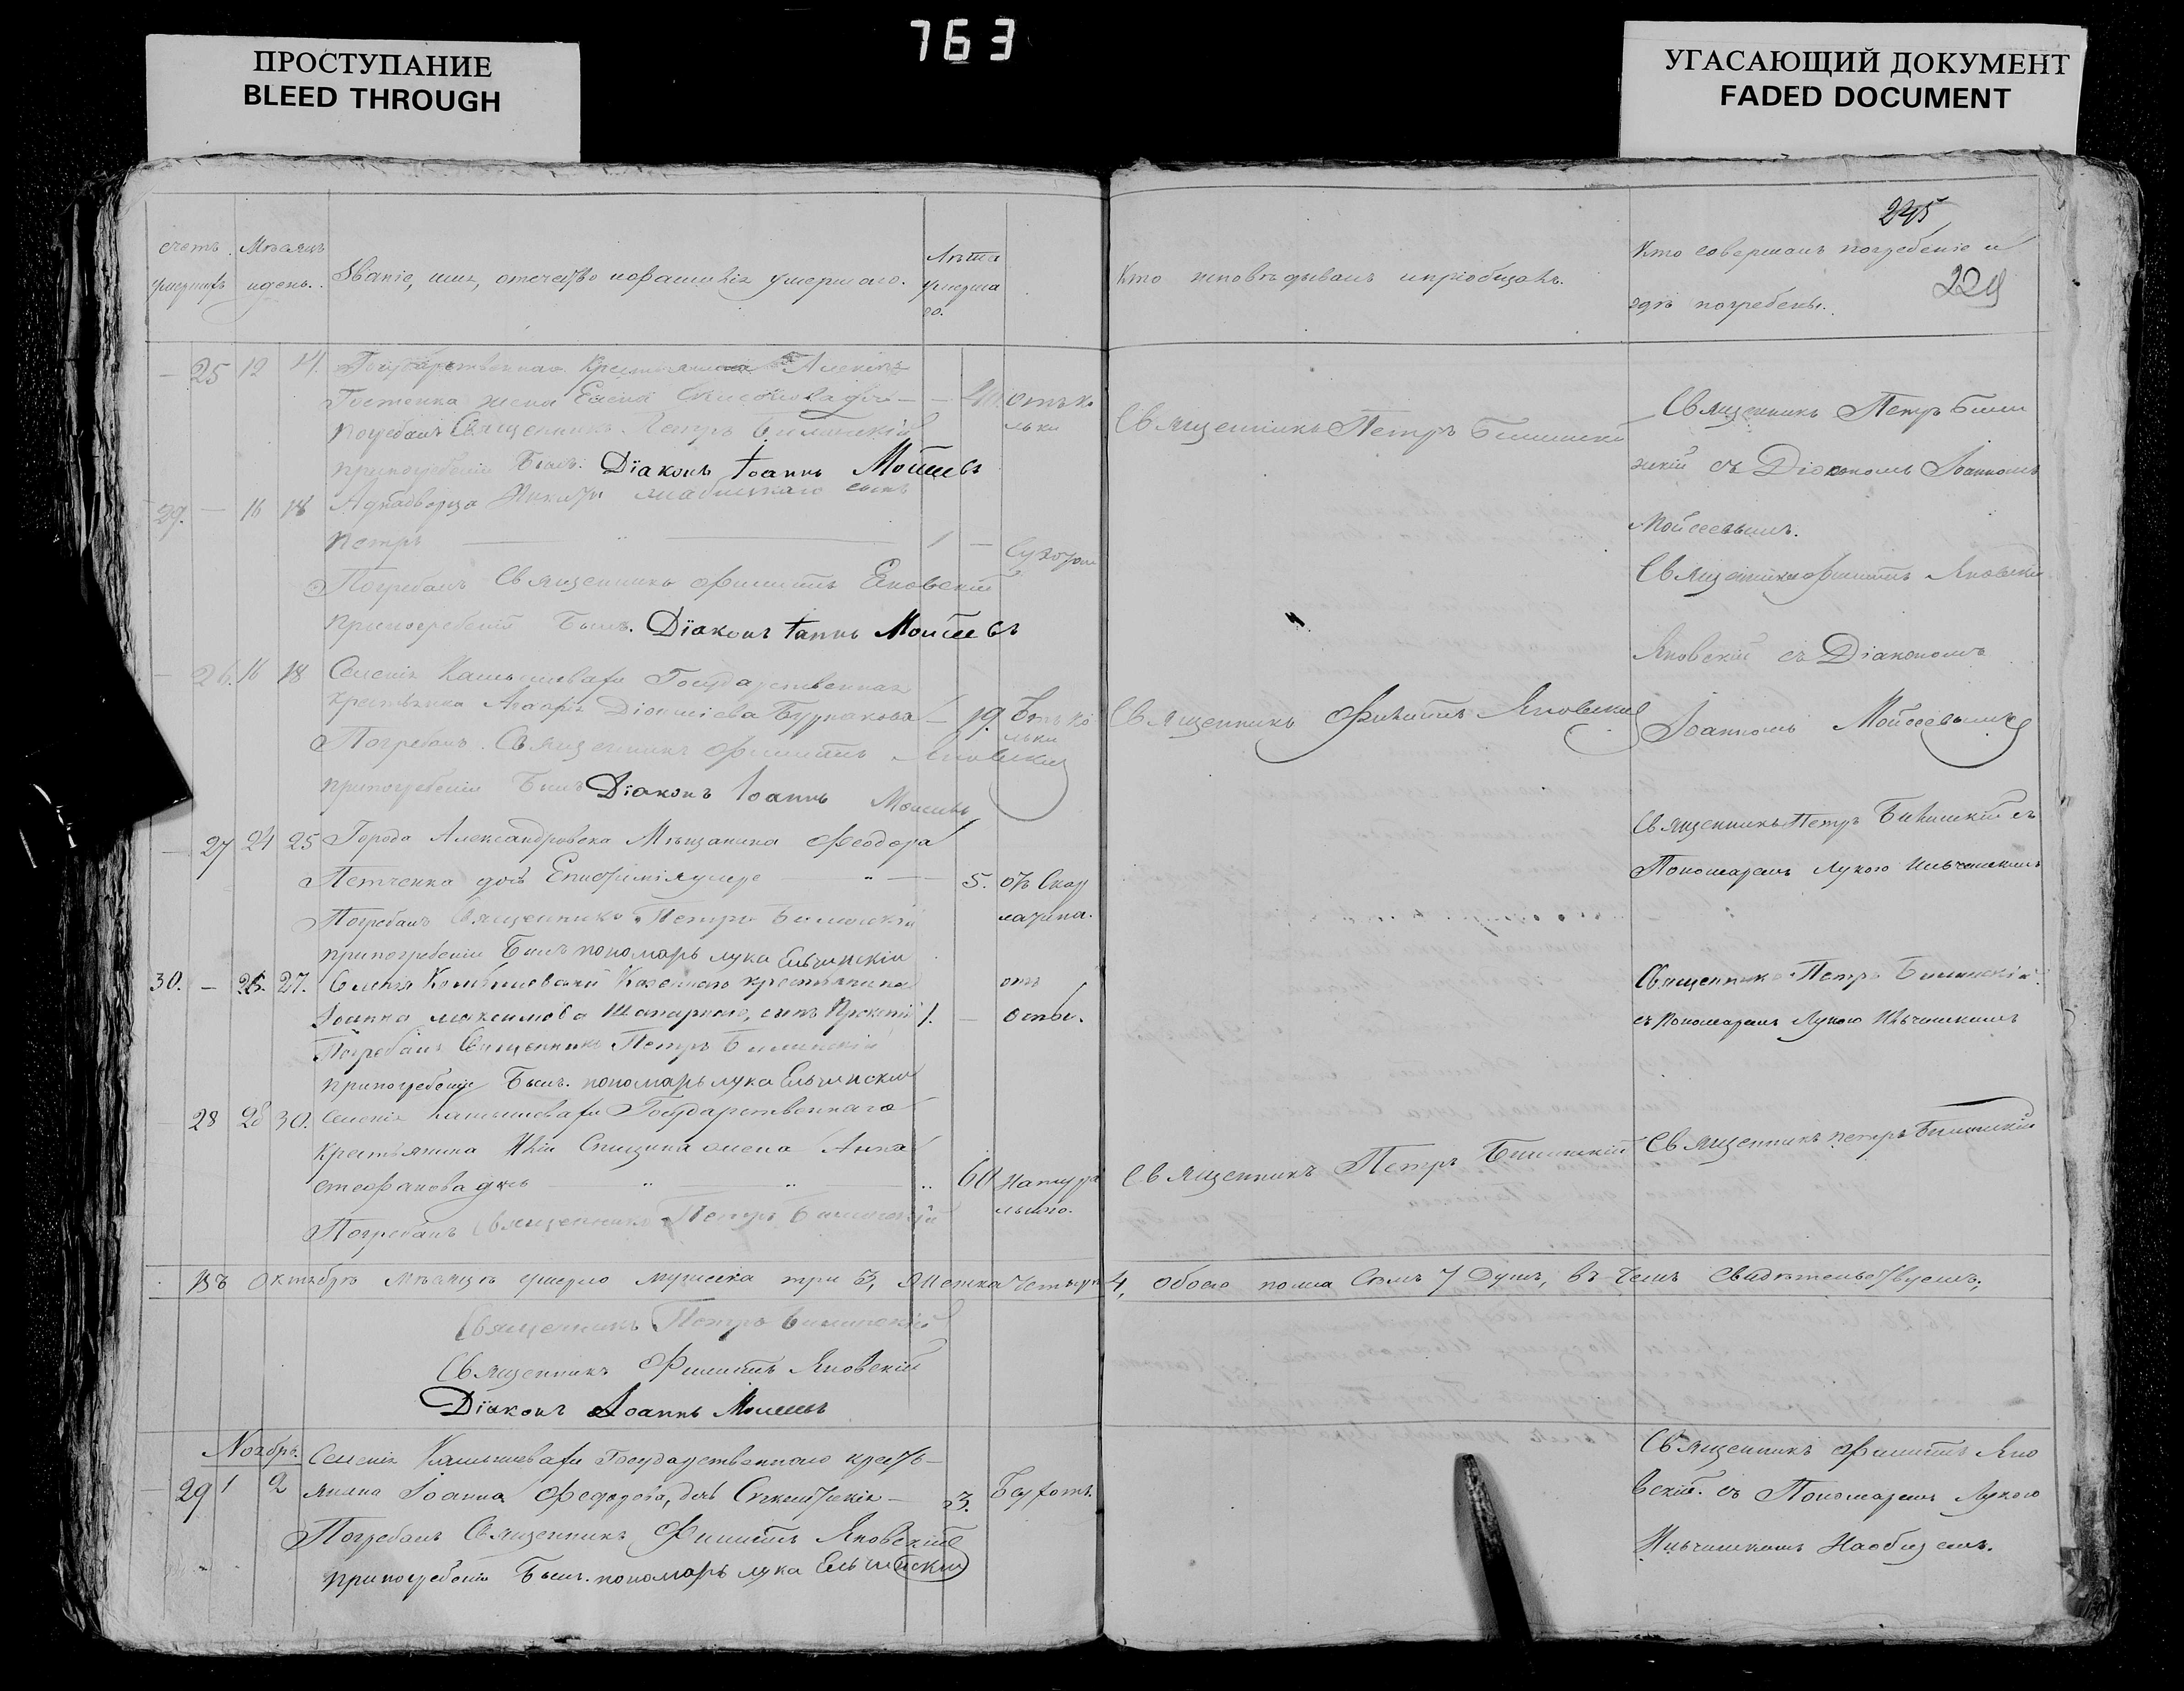 763
ПРОСТУПАНИЕ
BLEED THROUGH
УГАСАЮЩИЙ ДОКУМЕНТ
FADED DOCUMENT
245
229
счетъ умершихъ
Мѣсяцъ идень.
Званіе, имя, отечество ифамилія умершаго.
Лѣта умерша го.
Кто исповѣдывалъ ипріобщалъ.
Кто совершалъ погребеніе и
гдѣ погребены.
25 12 14. Государственнаго крестьянина
жена Елена 40 отъ ко
льки
Погребалъ Священникъ Петръ Билинскій
припогребеніи былъ: Діаконъ Іоаннъ Мойсеевъ
Священникъ Петръ Билинскій
Священникъ Петръ Билин
скій съ Діакономъ Іоанномъ
Мойсеевымъ.
29. 16 18 сынъ
Петръ 1
Погребалъ Священникъ Филиппъ Яновскій
припогребеніи былъ. Діаконъ Іоаннъ Мойсеевъ
Священникъ Филиппъ Яновскій
Яновскій съ Діакономъ
Іоанномъ Мойсеевымъ
26. 16 18 Селенія Камышевахи Государственная
крестьянка Діонисіева Бурлакова 19. отъ ко
льки
Погребалъ. Священникъ Филиппъ Яновскій
припогребеніи былъ Діаконъ Іоаннъ Мойсеевъ
Священникъ Филиппъ Яновскій
27 24 25 Города Александровска Мѣщанина Феодора
Петченка дочь 5. отъ Скар
латина.
Погребалъ Священникъ Петръ Билинскій
припогребеніи былъ пономарь лука Ельчинскій
Священникъ Петръ Билинскій съ
Пономаремъ Лукою Ильчинскимъ
30. 26. 27. Селенія Камышевахи Казеннаго крестьянина
Іоанна максимова сынъ 1. отъ
оспы.
Погребалъ Священникъ Петръ Билинскій
припогребеніи былъ. пономарь лука Ельчинскій
Священникъ Петръ Билинскій
съ Пономаремъ Лукою Ильчинскимъ
28 28 30. Селенія Камышевахи Государственнаго
крестьянина Спицина жена Анна
стефанова дочь 60 натура
льно.
Погребалъ Священникъ Петръ Билинскій
Священникъ Петръ Билинскій
Священникъ петръ Билинскій
Въ Октябрѣ мѣсяцѣ умерло мужеска три 3, женска четыре 4, обоего пола Семъ 7 душъ, въ чемъ свидѣтельствуемъ;
Священникъ Петръ Билинскій
Священникъ Филиппъ Яновскій
Діаконъ Іоаннъ Мойсеевъ
Ноябрь.
29 1 2 Селенія Камышевахи Государственнаго кресть-
янина Іоанна дочь 3.
Погребалъ Священникъ Филиппъ Яновскій
припогребеніи былъ. пономарь лука Ельчинскій
Священникъ Филиппъ Яно
вскій. съ Пономаремъ Лукою
Ильчинскимъ